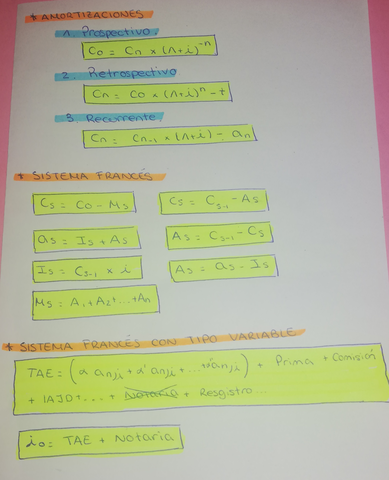 * AMORTIZACIONES
1. Prospectivo
Co = Cn x (1+i)^-n
2. Retrospectivo
Cn = Co x (1+i)^n - t
3. Recurrente
Cn = Cn-1 x (1+i) - an
* SISTEMA FRANCÉS
Cs = Co - Ms Cs = Cs-1 - As
as = Is + As As = Cs-1 - Cs
Is = Cs-1 x i As = as - Is
Ms = A1 + A2 + ... + An
* SISTEMA FRANCÉS CON TIPO VARIABLE
TAE = (α an¬i + α' an¬i + ... + α' an¬i) + Prima + Comisión
+ IAJD + ... + Notaria + Resgistro...
io = TAE + Notaria